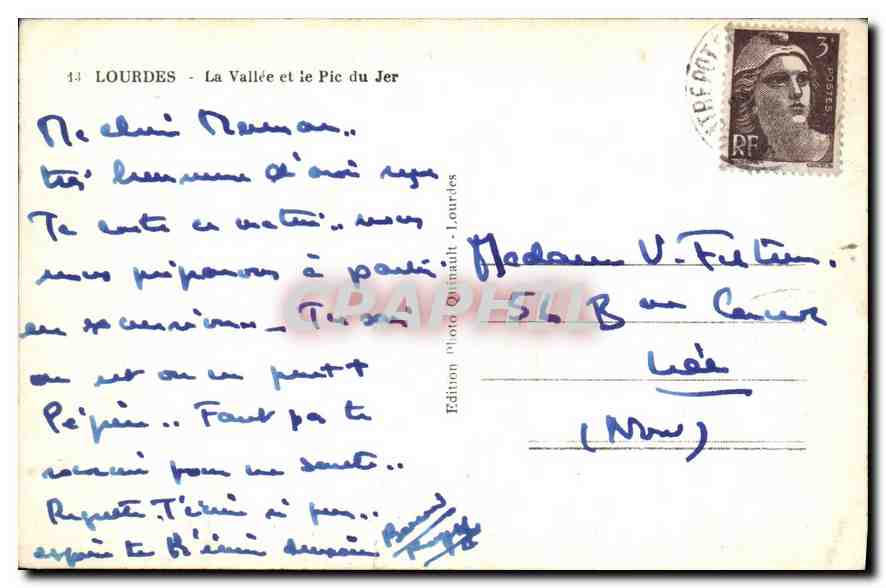 13 LOURDES - La Vallée et le Pic du Jer
Ma chère Maman..
très heureuse d'avoir reçu
Ta carte ce matin.. nous
nous préparons à partir
en excursion - Tu sais
on est on ne peut +
Pépère.. Faut pas te
pour ma santé..
Huguette T'écrira
espère te
Edition Photo Quinault - Lourdes
TREPOT
3F
POSTES
RF
Madame V.
54 B rue
(Nord)
CPAPHIL